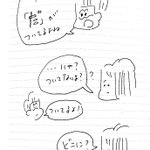 が
ついてるよね
ついてないよ?
?
ついてるよ!
どこに?